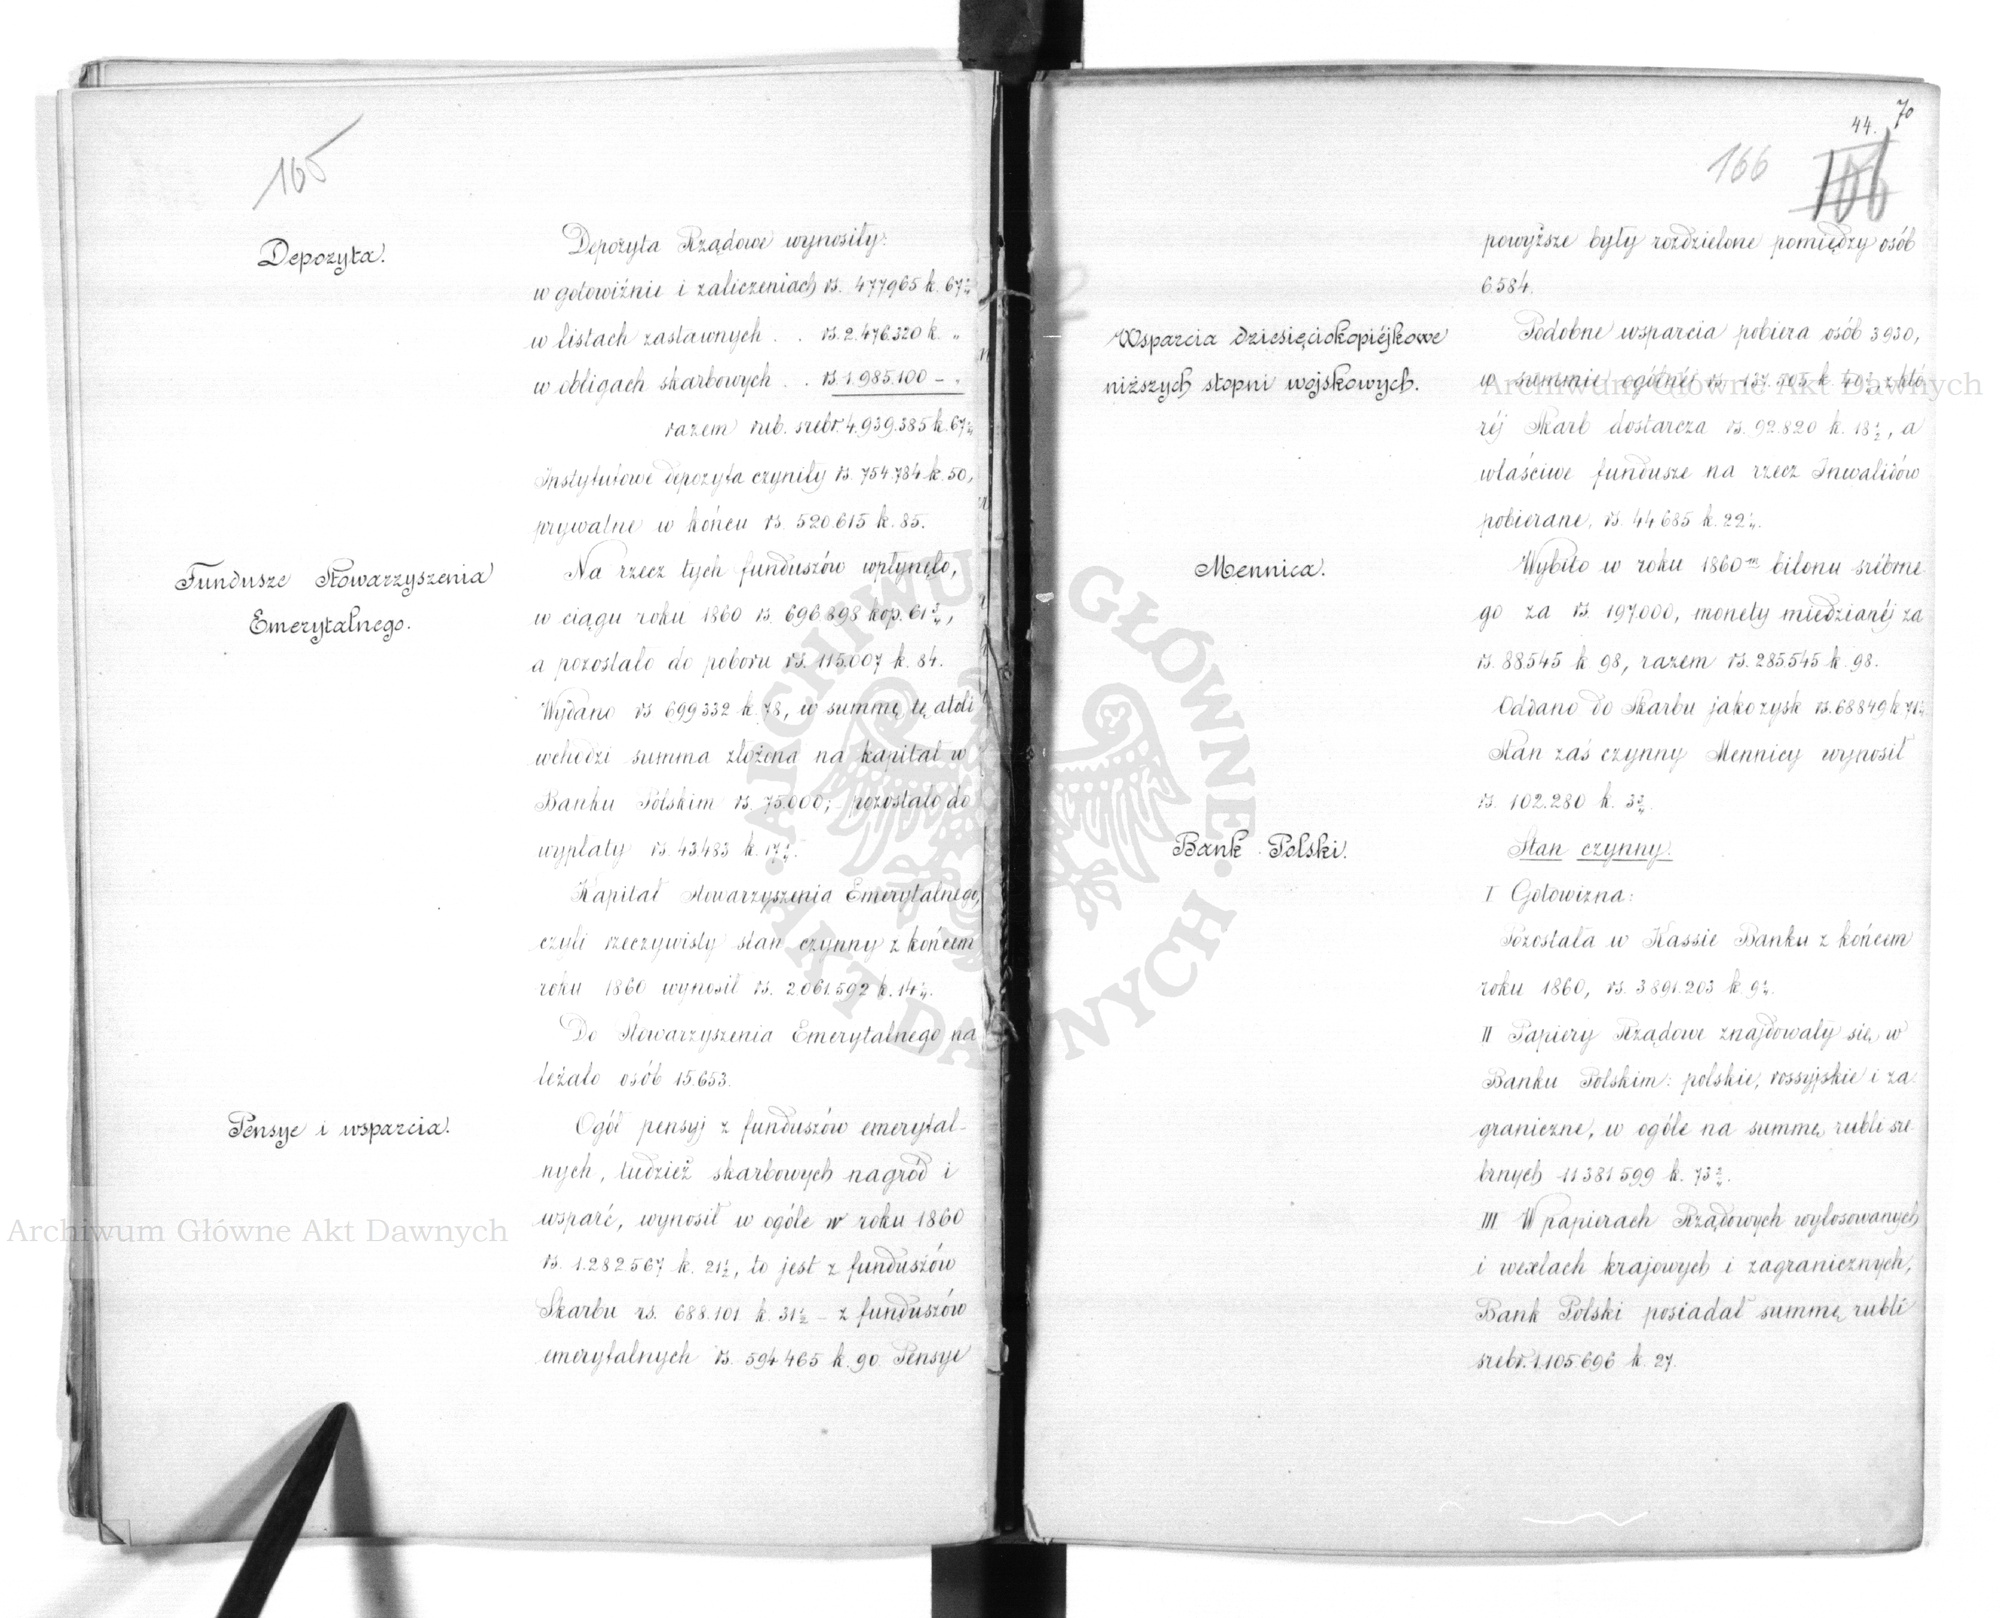 165
Depozyta.
Depozyta Rządowe wynosiły:
w gotowiźnie i zaliczeniach rs. 477965 k. 67½
w listach zastawnych . . rs. 2.476.320 k. „
w obligach skarbowych . . rs. 1.985.100 – „
razem rub. srebr. 4.939.385 k. 67½
Instytutowe depozyta czyniły rs. 754.784 k. 50,
prywatne w końcu rs. 520.615 k. 85.
Fundusze Stowarzyszenia
Emerytalnego.
Na rzecz tych funduszów wpłynęło,
w ciągu roku 1860 rs. 696.898 kop. 61
a pozostało do poboru rs. 115.007 k. 84.
Wydano rs 699332 k. 78, w summę tę atoli
wchodzi summa złożona na kapitał w
Banku Polskim rs. 75.000; – pozostało do
wypłaty rs. 43483 k. 17
Kapitał Stowarzyszenia Emerytalnego,
czyli rzeczywisty stan czynny z końcem
roku 1860 wynosił rs. 2.061.592 k. 14
Do Stowarzyszenia Emerytalnego na
leżało osób 15.653.
Pensye i wsparcia.
Ogół pensyj z funduszów emerytal-
nych, tudzież skarbowych nagród i
wsparć, wynosił w ogóle w roku 1860
rs. 1.282567 k. 21½, to jest z funduszów
Skarbu rs. 688.101 k. 31½ – z funduszów
emerytalnych rs. 594.465 k. 90 Pensye
70
44.
166
106
powyższe były rozdzielone pomiędzy osób
6584.
Wsparcia dziesięciokopiéjkowe
niższych stopni wojskowych.
Podobne wsparcia pobiera osób 3930,
w summie ogólnéj rs. 137.505 k. 40¾, z któ
réj Skarb dostarcza rs. 92.820 k. 18½, a
właściwe fundusze na rzecz Inwalidów
pobierane, rs. 44685 k. 22¼.
Mennica.
Wybito w roku 1860ym bilonu srébrne
go za rs. 197.000, monety miedzianéj za
rs. 88545 k 98, razem rs. 285545 k. 98.
Oddano do Skarbu jako zysk rs. 68849 k 71
Stan zaś czynny Mennicy wynosił
rs. 102.280 k. 3
Bank Polski.
Stan czynny.
I Gotowizna:
Pozostała w Kassie Banku z końcem
roku 1860, rs. 3891.203 k. 9
II Papiery Rządowe znajdowały się w
Banku Polskim: polskie, rossyjskie i za
graniczne, w ogóle na summę rubli sre
brnych 11381599 k. 73
III W papierach Rządowych wylosowanych
i wexlach krajowych i zagranicznych,
Bank Polski posiadał summę rubli
srebr. 1.105.696 k. 27.
Archiwum Główne Akt Dawnych
Archiwum Główne Akt Dawnych
ARCHIWUM GŁÓWNE
AKT DAWNYCH